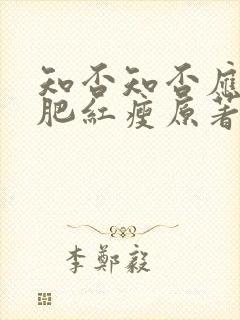 知否知否應
肥紅瘦原著
李鄭毅